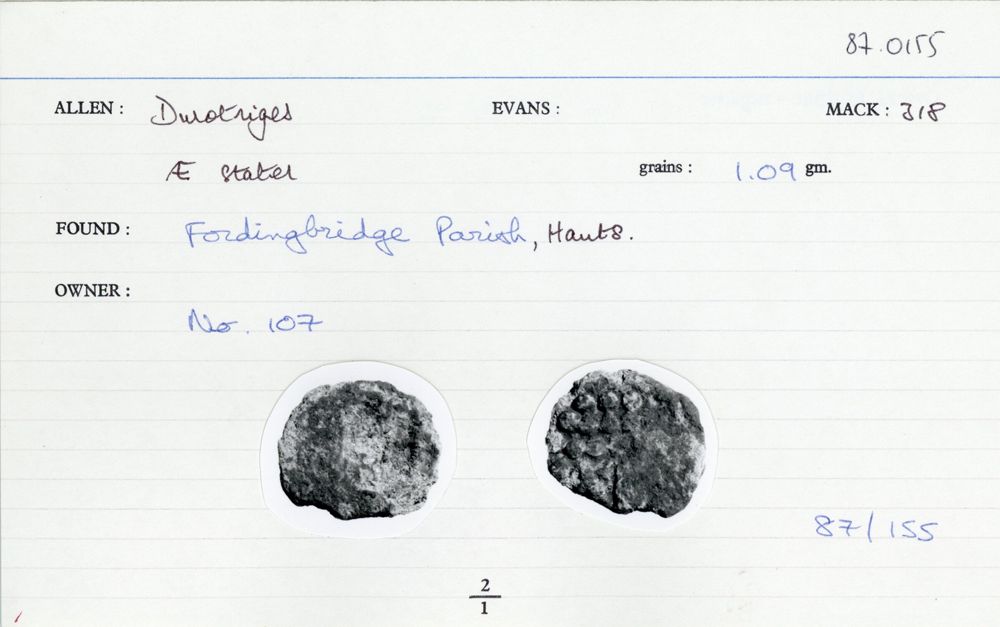 87.0155
ALLEN : Durotriges EVANS : MACK : 318
Æ stater grains : 1.09 gm.
FOUND : Fordingbridge Parish, Hants.
OWNER :
No. 107
87/155
2
1